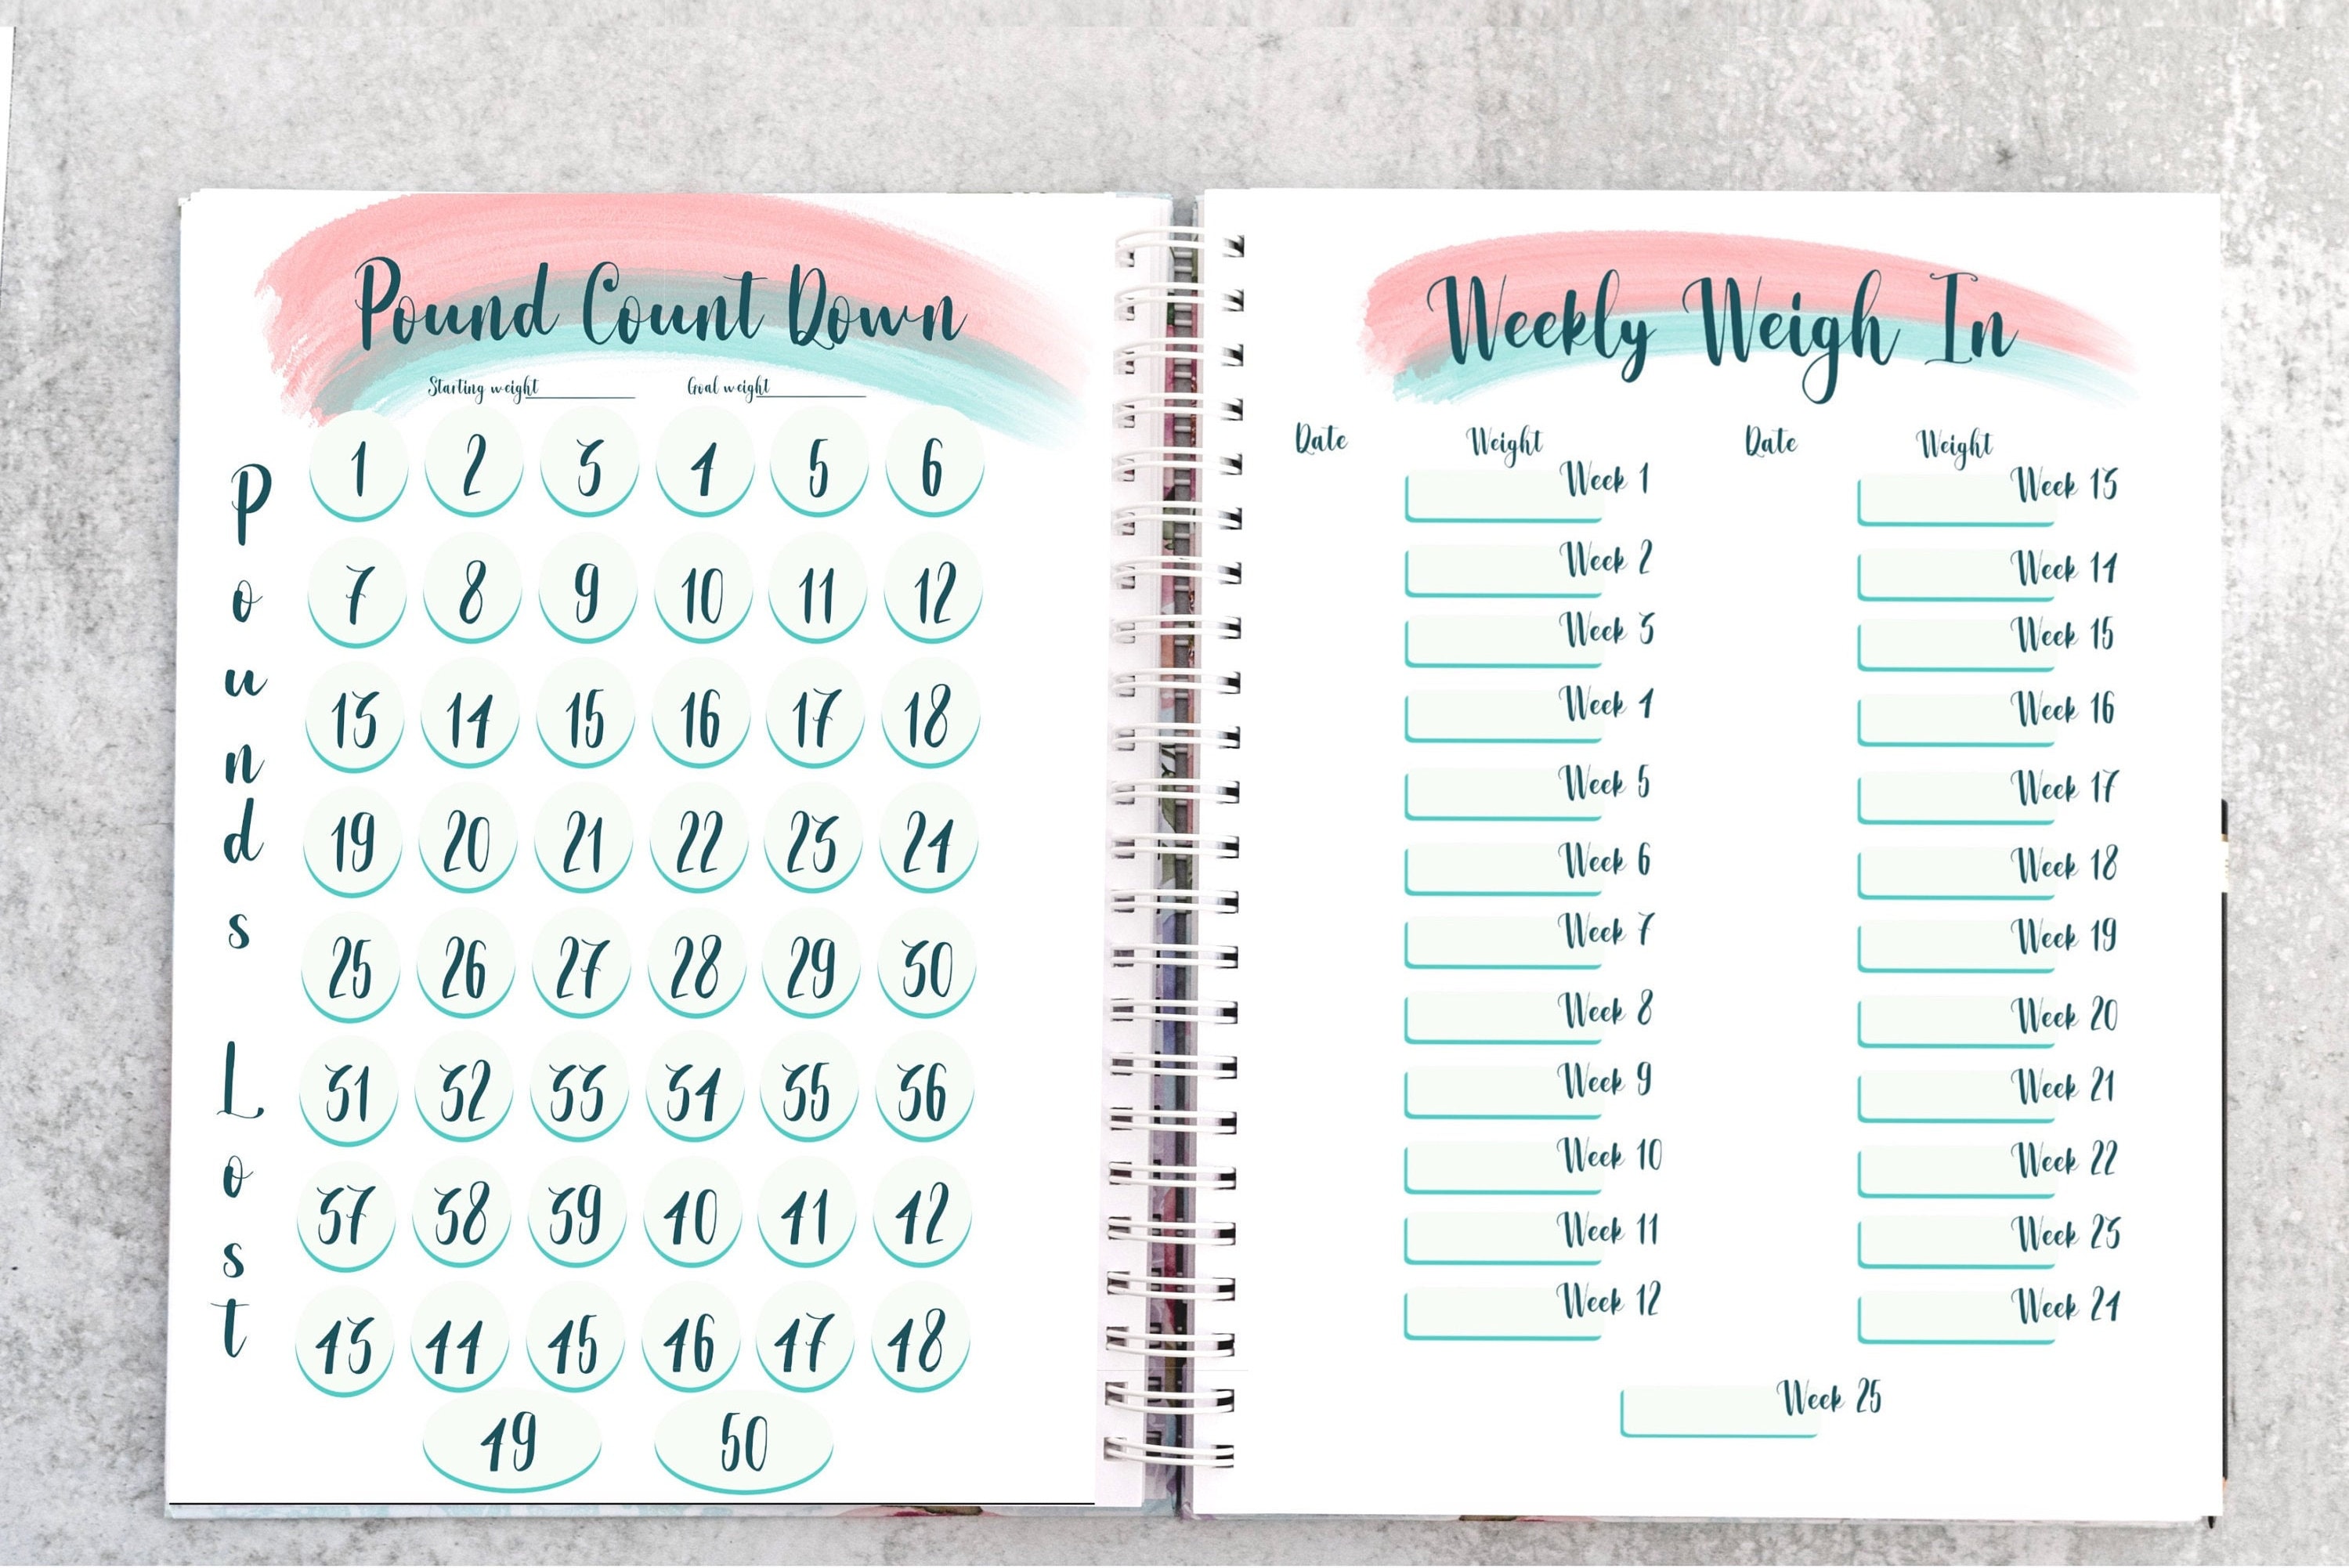 Pound Count Down
Starting weight
Goal weight
Pounds Lost
1 2 3 4 5 6
7 8 9 10 11 12
13 14 15 16 17 18
19 20 21 22 23 24
25 26 27 28 29 30
31 32 33 34 35 36
37 38 39 40 41 42
43 44 45 46 47 48
49 50
Weekly Weigh In
Date Weight
Week 1
Week 2
Week 3
Week 4
Week 5
Week 6
Week 7
Week 8
Week 9
Week 10
Week 11
Week 12
Date Weight
Week 13
Week 14
Week 15
Week 16
Week 17
Week 18
Week 19
Week 20
Week 21
Week 22
Week 23
Week 24
Week 25